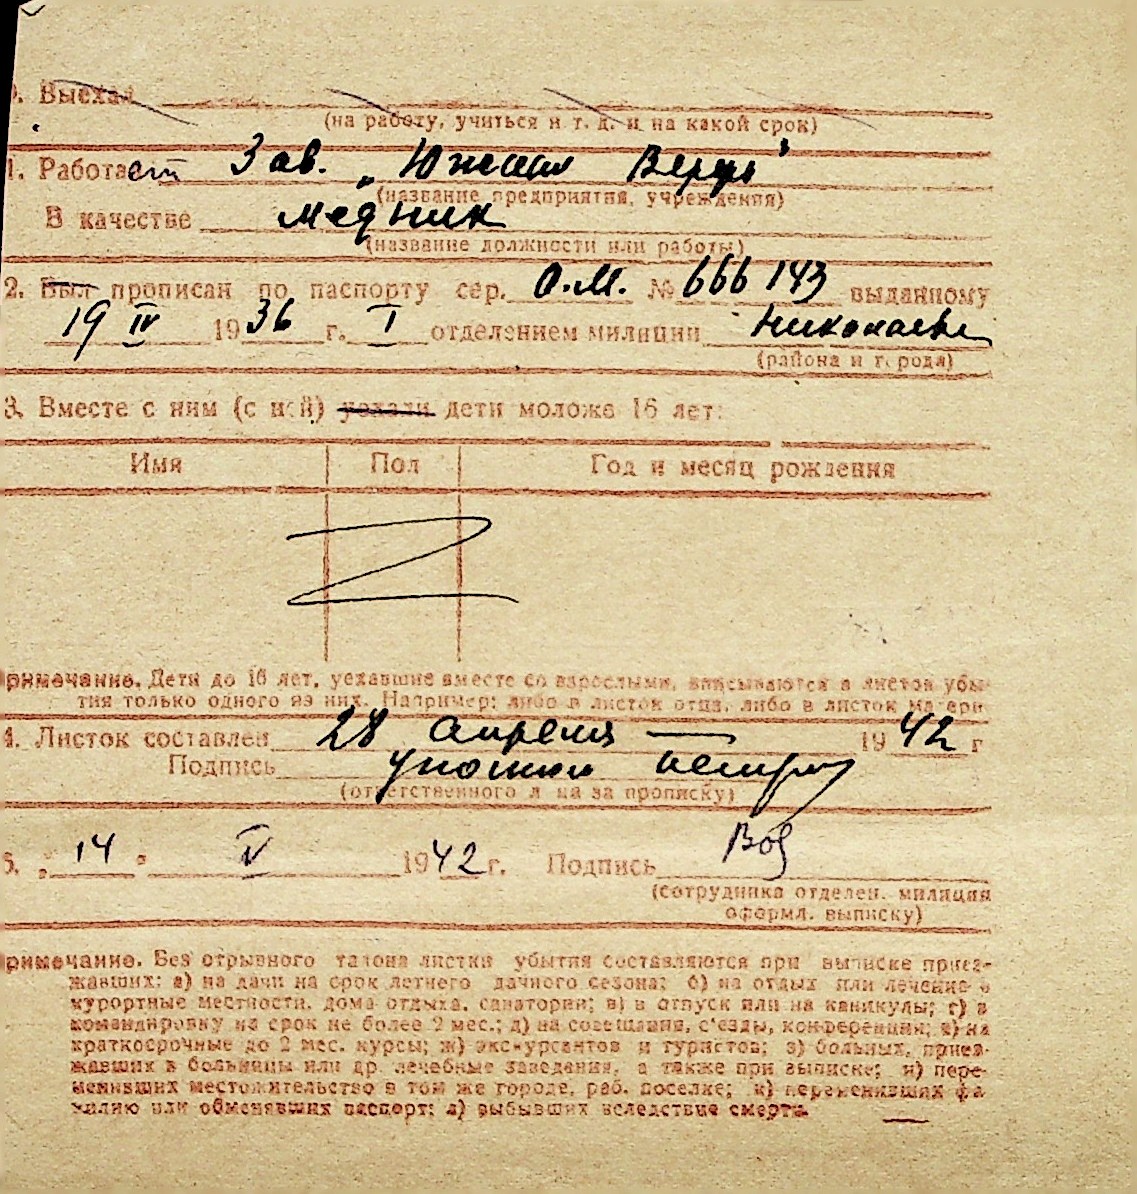 0. Выехал
(на работу, учиться и т. д. и на какой срок)
1. Работает Зав. „Южная Верфь"
(название предприятия, учреждения)
В качестве медник
(название должности или работы)
2. Был прописан по паспорту сер. О.М. № 666143 выданному
19 IV 1936 г. I отделением милиции Николаева
(района и города)
3. Вместе с ним (с ней) уехали дети моложе 16 лет:
Имя Пол Год и месяц рождения
Примечание. Дети до 16 лет, уехавшие вместе со взрослыми, вписываются в листок убы-
тия только одного из них. Например: либо в листок отца, либо в листок матери
4. Листок составлен 28 апреля 1942 г
Подпись
(ответственного лица за прописку)
5. „14" V 1942 г. Подпись
(сотрудника отделен. милиции
оформл. выписку)
Примечание. Без отрывного талона листки убытия составляются при выписке приез-
жавших: а) на дачи на срок летнего дачного сезона; б) на отдых или лечение в
курортные местности, дома отдыха, санатории; в) в отпуск или на каникулы; г) в
командировку на срок не более 2 мес.; д) на совещания, с'езды, конференции; е) на
краткосрочные до 2 мес. курсы; ж) экскурсантов и туристов; з) больных, приез-
жавших в больницы или др. лечебные заведения, а также при выписке; и) пере-
менивших местожительство в том же городе, раб. поселке; к) переменивших фа
милию или обменявших паспорт; л) выбывших вследствие смерти.